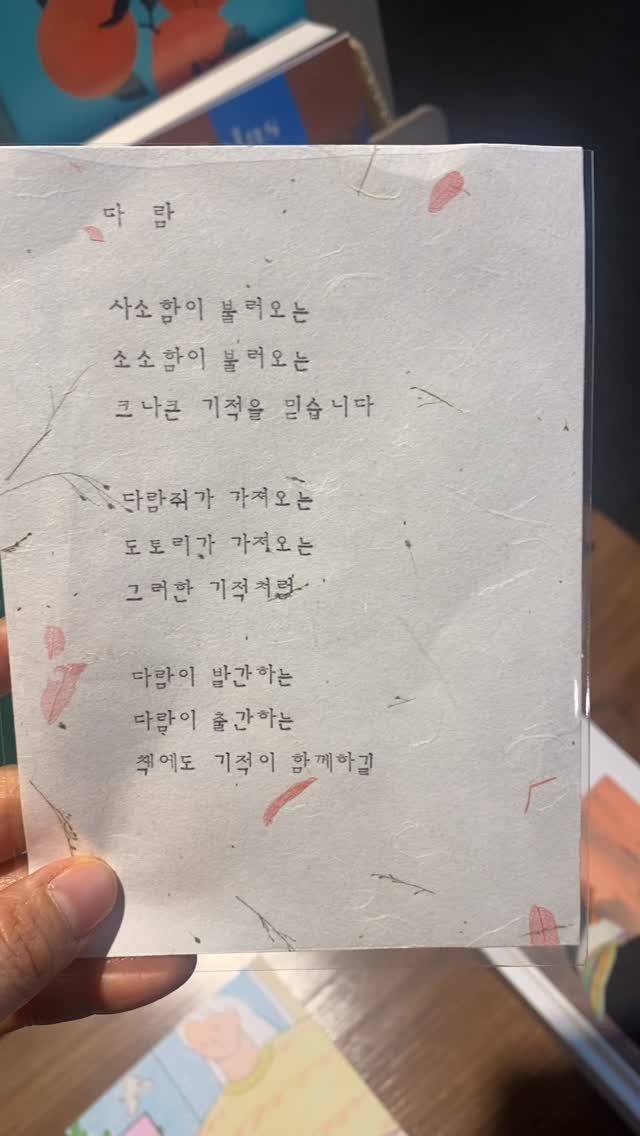 다 람
사소함이 불러오는
소소함이 불러오는
크나큰 기적을 믿습니다
다람쥐가 가져오는
도토리가 가져오는
그러한 기적처럼
다람이 발간하는
다람이 출간하는
책에도 기적이 함께하길